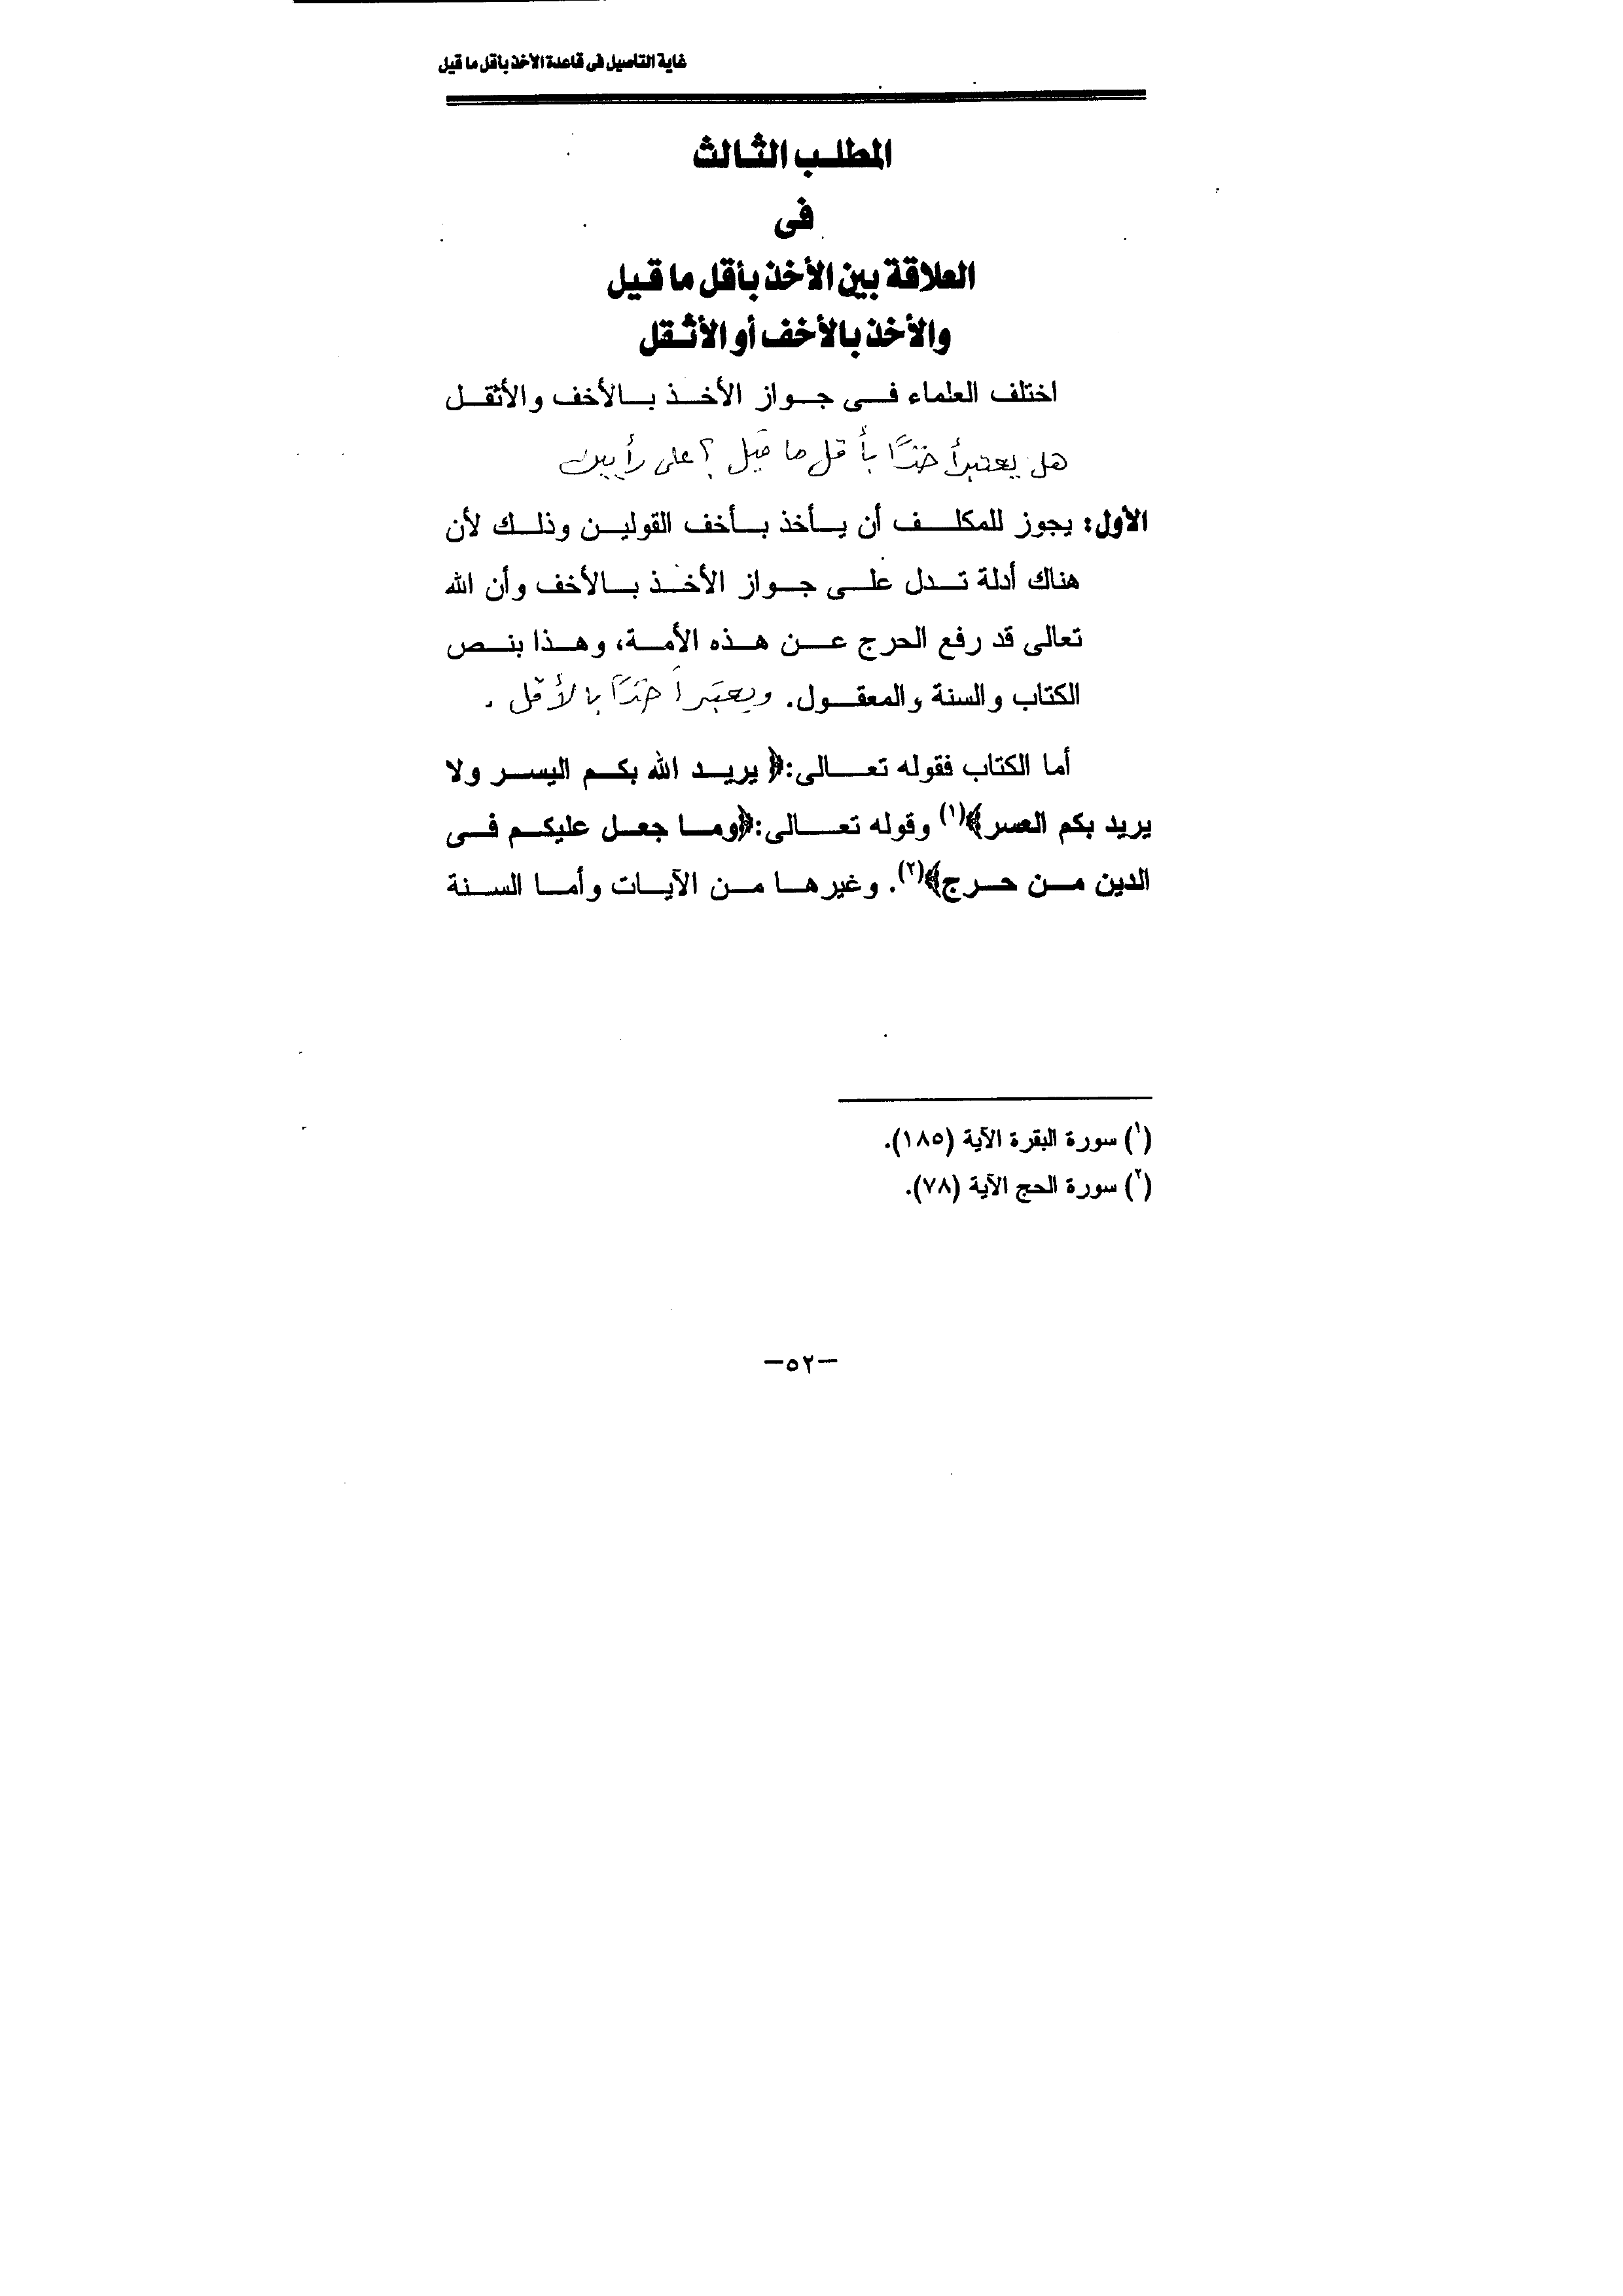 غاية التأصيل فى قاعدة الأخذ بأقل ما قيل
المطلب الثالث
فى
العلاقة بين الأخذ بأقل ما قيل
والأخذ بالأخف أو الأثقل
اختلف العلماء فى جواز الأخذ بالأخف والأثقل
هل يعتبر أخذًا بأقل ما قيل؟ على رأيين
الأول: يجوز للمكلف أن يأخذ بأخف القولين وذلك لأن
هناك أدلة تدل على جواز الأخذ بالأخف وأن الله
تعالى قد رفع الحرج عن هذه الأمة، وهذا بنص
الكتاب والسنة والمعقول. ويعتبر أخذًا بالأقل.
أما الكتاب فقوله تعالى:﴿ يريد الله بكم اليسر ولا
يريد بكم العسر﴾(١) وقوله تعالى:﴿وما جعل عليكم فى
الدين من حرج﴾(٢). وغيرها من الآيات وأما السنة
(١) سورة البقرة الآية (١٨٥).
(٢) سورة الحج الآية (٧٨).
–٥٢–